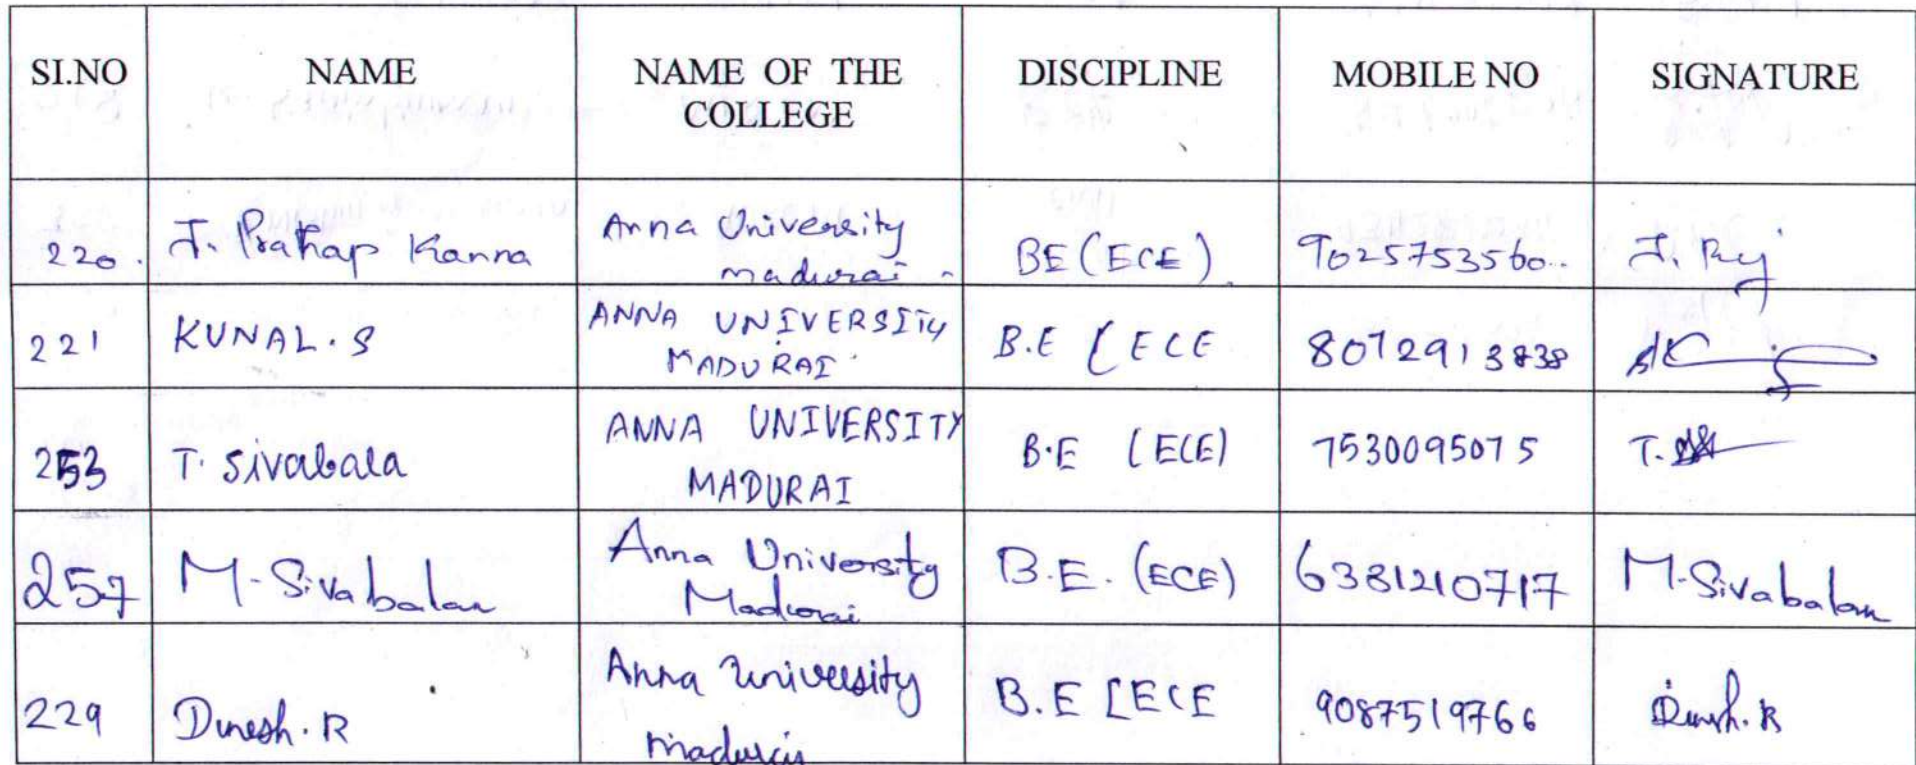 SI.NO NAME NAME OF THE COLLEGE DISCIPLINE MOBILE NO SIGNATURE
220. J. Prathap Kanna Anna University madurai BE (ECE). 9025753560. J.
221 KUNAL.S ANNA UNIVERSITY MADURAI B.E [ECE 8072913838
253 T. Sivabala ANNA UNIVERSITY MADURAI B.E (ECE) 7530095075 T.
257 M. Sivabalan Anna University Madurai B.E. (ECE) 6381210717 M. Sivabalan
229 Dinesh. R Anna University madurai B.E [ECE 9087519766 Dinesh. R